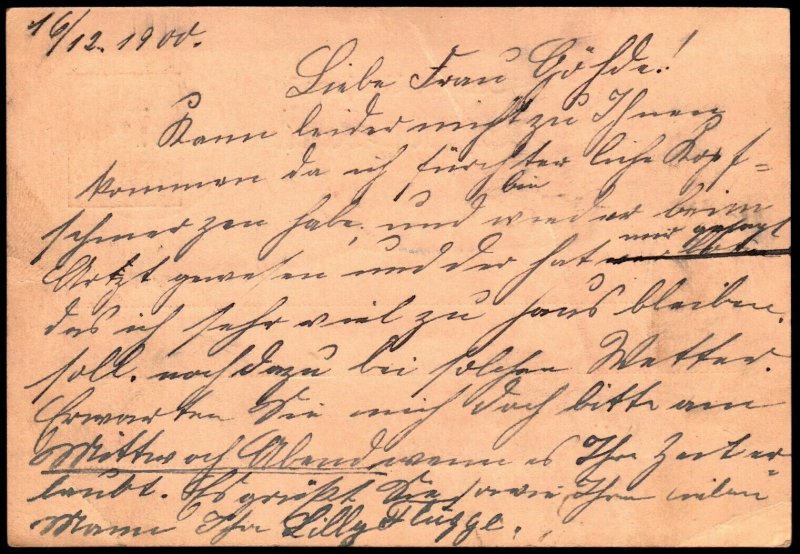 16/12. 1900.
Liebe Frau Göhde!
Kann leider nicht zu Ihnen
kommen da ich fürchterliche Kopf=
bin
schmerzen habe, und wieder beim
mir gesagt
Artzt gewesen und der hat
das ich sehr viel zu haus bleiben.
soll. noch dazu bei solchen Wetter.
Erwarten Sie mich doch bitte am
Mittwoch Abend wenn es Ihre Zeit er=
laubt. Es grüßt Sie sowie Ihren lieben
Mann Ihre Lilly Flügge.